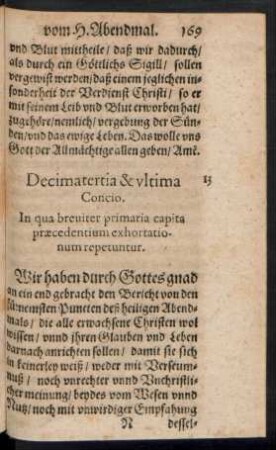 vom H. Abendmal. 169
vnd Blut mittheile/ daß wir dadurch/
als durch ein Göttlichs Sigill/ sollen
vergewist werden/ daß einem jeglichen in-
sonderheit der Verdienst Christi/ so er
mit seinem Leib vnd Blut erworben hat/
zugehöre/ nemlich/ vergebung der Sün-
den/ vnd das ewige Leben. Das wolle vns
Gott der Allmächtige allen geben/ Amē.
Decimatertia & vltima 13
Concio.
In qua breuiter primaria capita
præcedentium exhortatio-
num repetuntur.
Wir haben durch Gottes gnad
an ein end gebracht den Bericht von den
fürnemsten Puncten deß heiligen Abend-
mals/ die alle erwachsene Christen wol
wissen/ vnnd jhren Glauben vnd Leben
darnach anrichten sollen/ damit sie sich
in keinerley weiß/ weder mit Verseum-
nuß/ noch vnrechter vnnd Vnchristli-
cher meinung/ beydes vom Wesen vnnd
Nutz/ noch mit vnwirdiger Empfahung
N dessel-